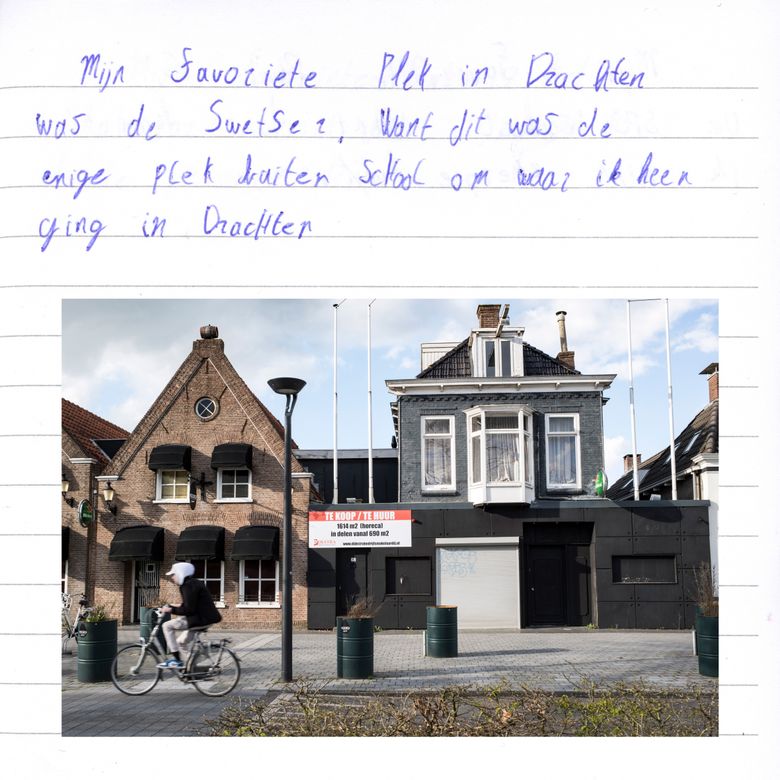 Mijn favoriete Plek in Drachten
was de Swetser, Want dit was de
enige plek buiten School om waar ik heen
ging in Drachten
TE KOOP / TE HUUR
1614 m2 (horeca)
in delen vanaf 690 m2